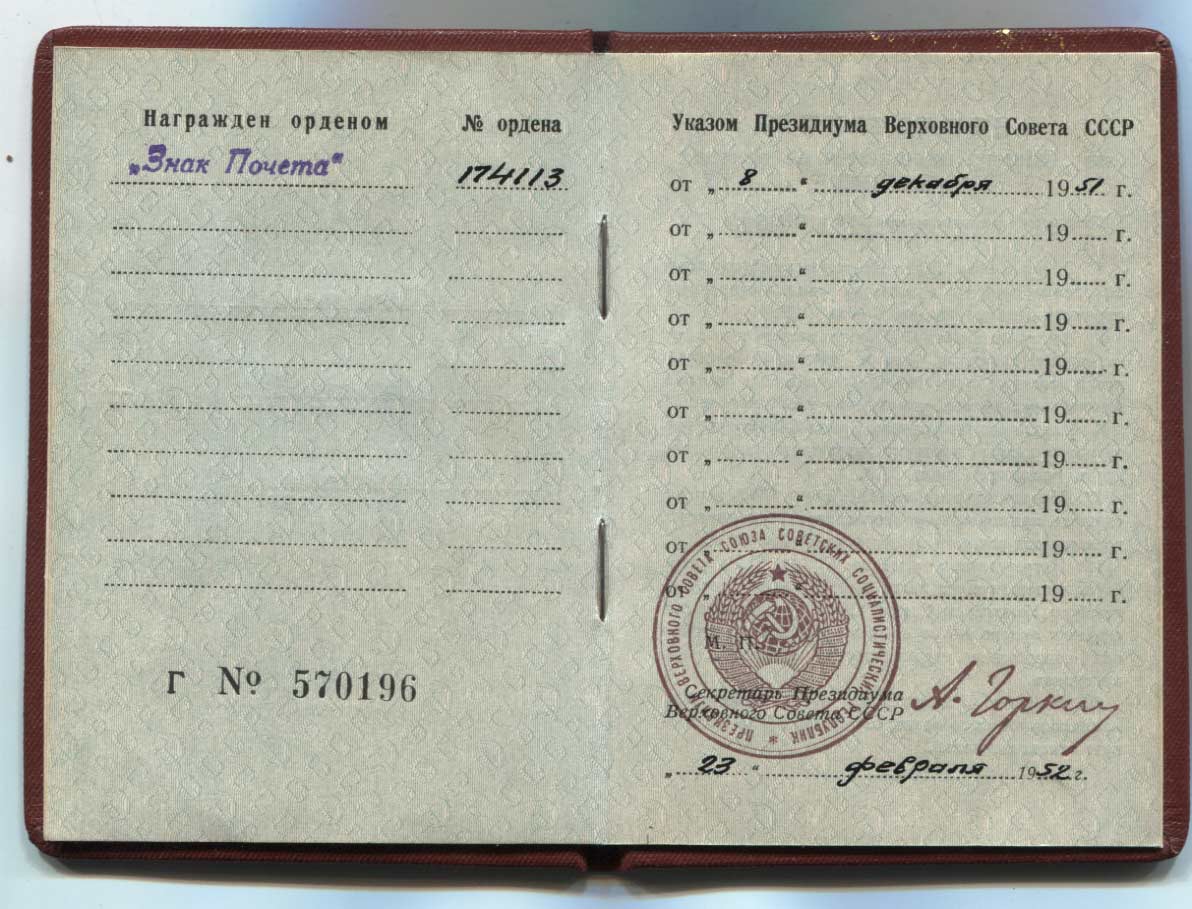 Награжден орденом № ордена
„Знак Почета“ 174113
Г № 570196
Указом Президиума Верховного Совета СССР
от „ 8 “ декабря 1951 г.
от „ “ 19 г.
от „ “ 19 г.
от „ “ 19 г.
от „ “ 19 г.
от „ “ 19 г.
от „ “ 19 г.
от „ “ 19 г.
от „ “ 19 г.
от „ “ 19 г.
ПРЕЗИДИУМ ВЕРХОВНОГО СОВЕТА СОЮЗА СОВЕТСКИХ СОЦИАЛИСТИЧЕСКИХ РЕСПУБЛИК
М. П.
Секретарь Президиума
Верховного Совета СССР
А. Горкин
„ 23 “ февраля 1952 г.